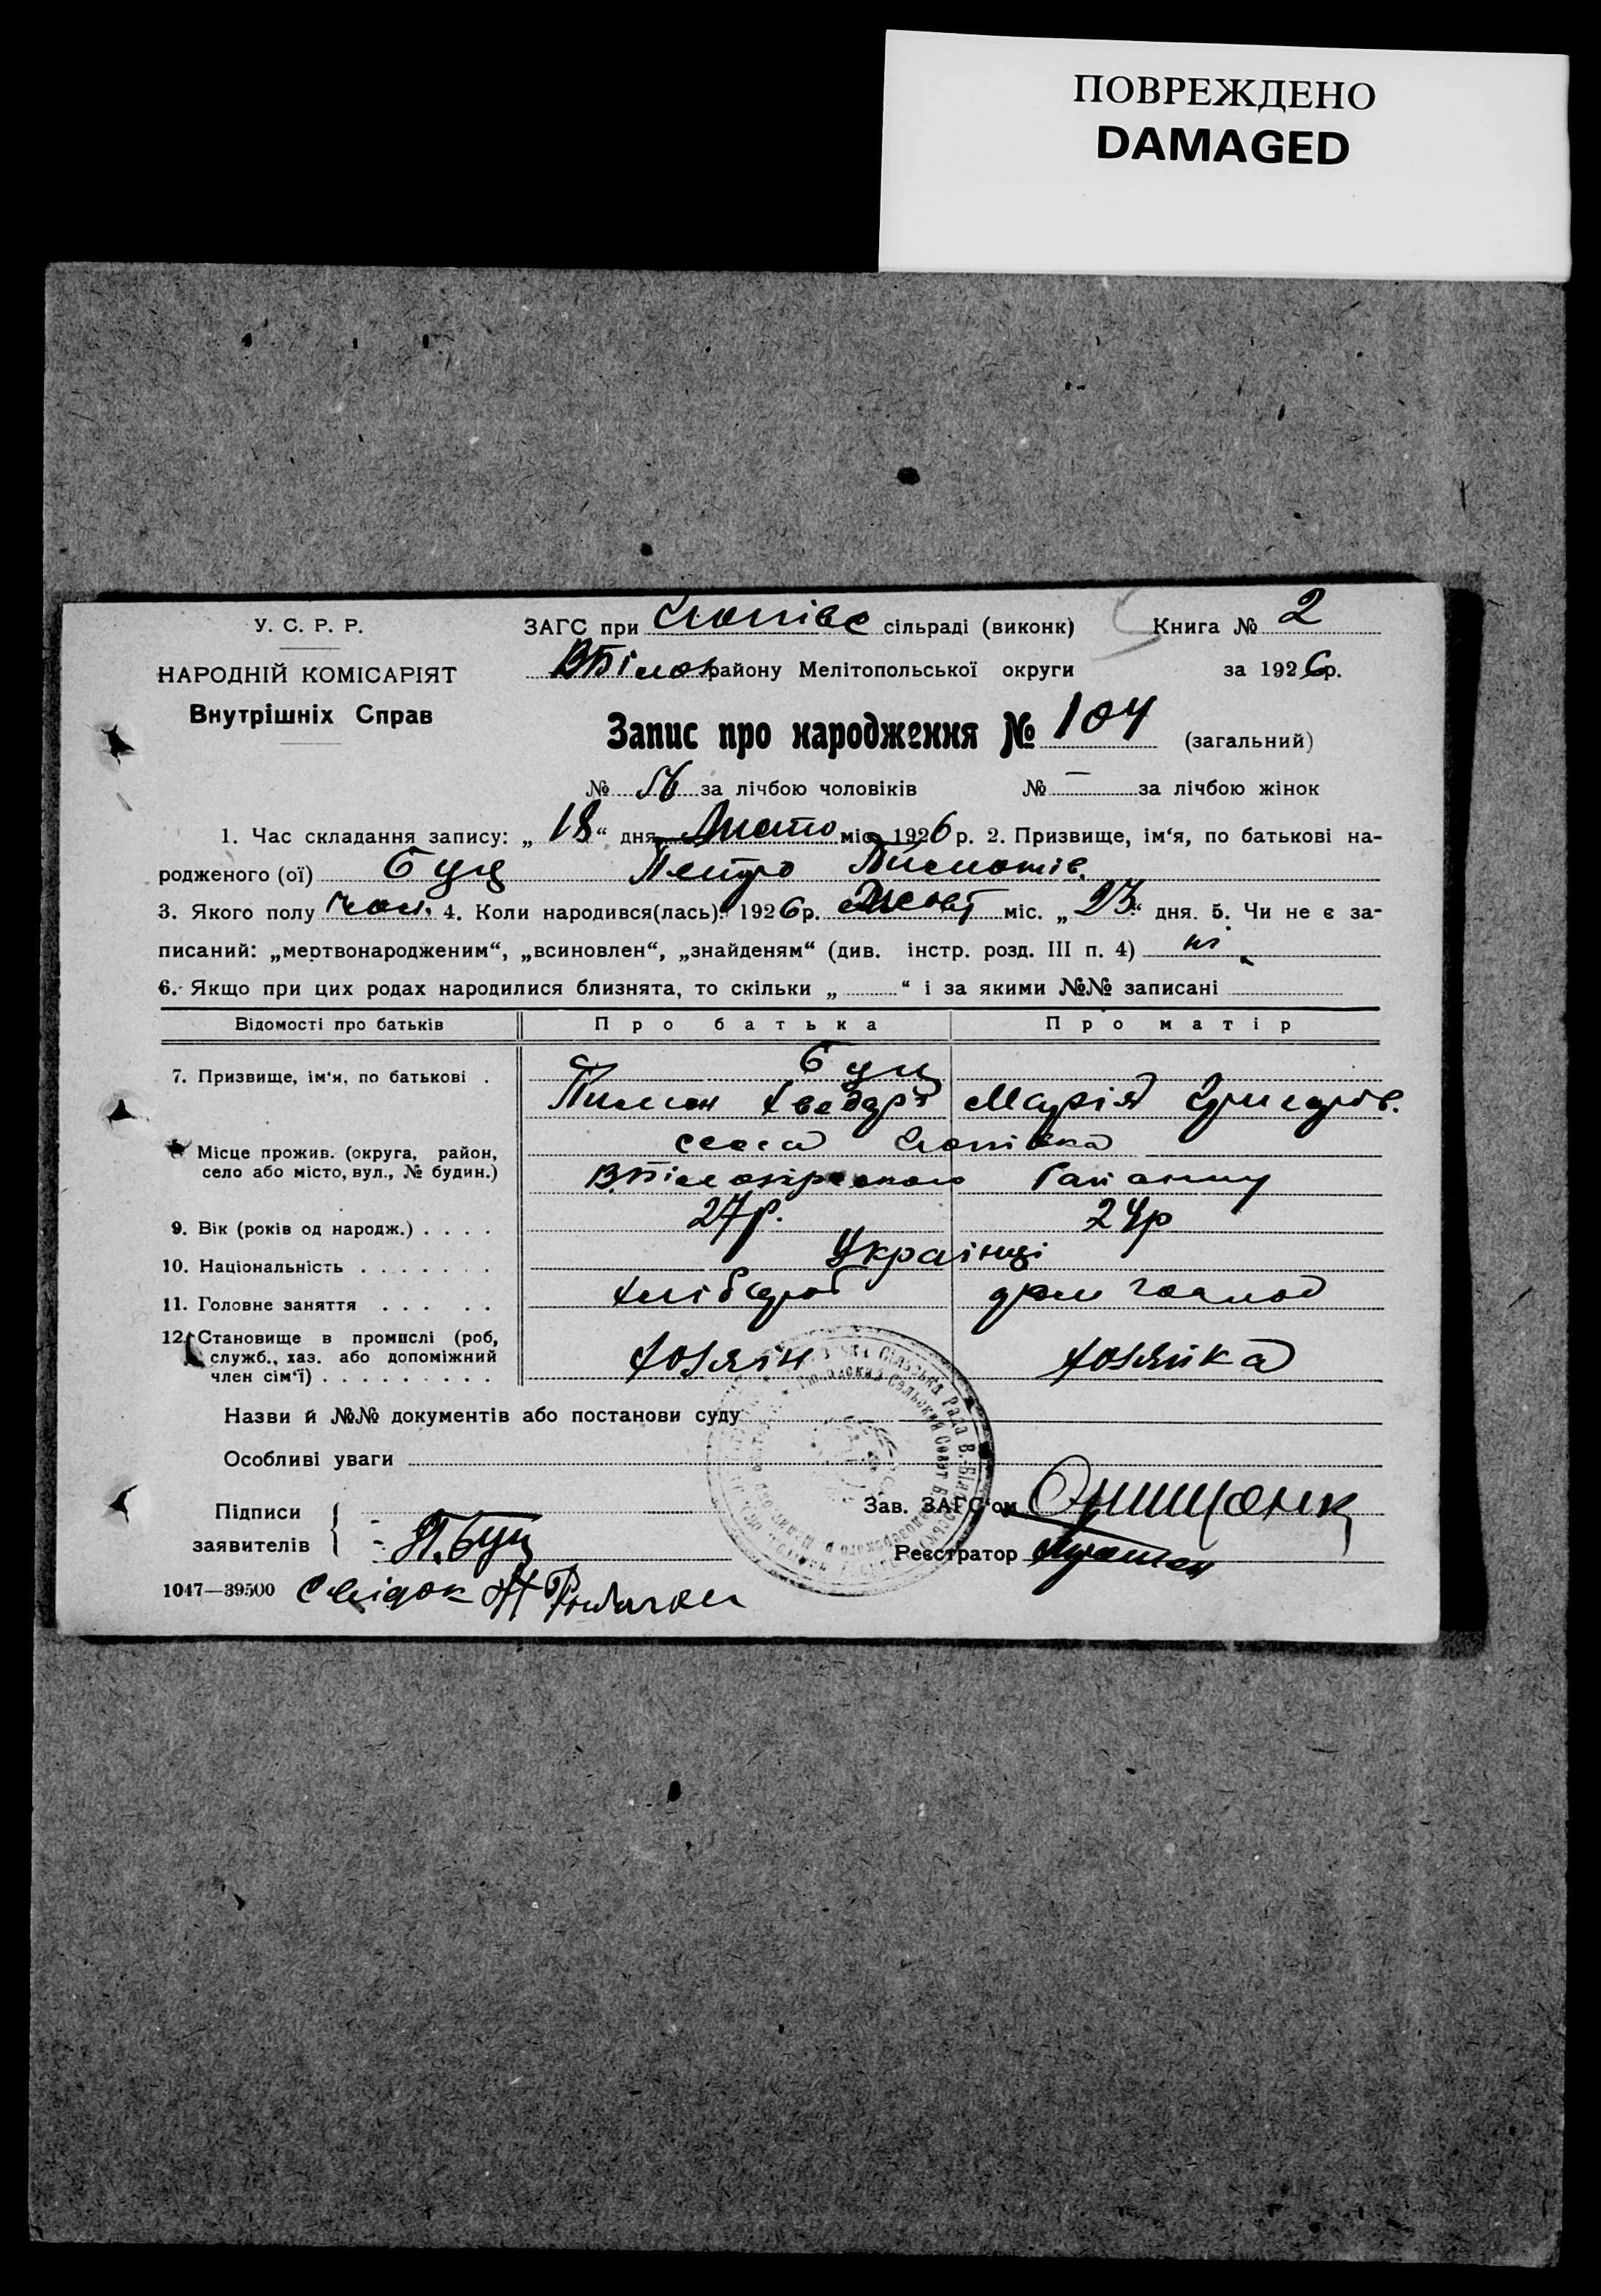 ПОВРЕЖДЕНО
DAMAGED
У. С. Р. Р.
НАРОДНІЙ КОМІСАРІЯТ
Внутрішніх Справ
ЗАГС при сільраді (виконк)
Книга № 2
ВБілоз району Мелітопольської округи
за 1926р.
Запис про народження № 104 (загальний)
№ за лічбою чоловіків № — за лічбою жінок
1. Час складання запису: „18“ дня Листо міс. 1926 р. 2. Призвище, ім‘я, по батькові на-
родженого (ої) Буц Петро Пилипів.
3. Якого полу чол. 4. Коли народився(лась): 1926р. Жовт міс. „23“ дня. 5. Чи не є за-
писаний: „мертвонародженим“, „всиновлен“, „знайденям“ (див. інстр. розд. III п. 4) ні
6. Якщо при цих родах народилися близнята, то скільки „ “ і за якими №№ записані
Відомості про батьків Про батька Про матір
7. Призвище, ім‘я, по батькові . Буц
Пилип Хведор Марія Григорів.
Місце прожив. (округа, район,
село або місто, вул., № будин.)
село
В.Білозірського Району
9. Вік (років од народж.) . . . . 27р. 24р
10. Національність . . . . . . . Українці
11. Головне заняття . . . . . Хлібороб дом господ
12. Становище в промислі (роб,
служб., хаз. або допоміжний
член сім‘ї) . . . . . . . . . Хозяін Хозяйка
Назви й №№ документів або постанови суду
Особливі уваги
Підписи
заявителів П. Буц
Зав. ЗАГС‘ом Онищенк
Реєстратор
1047—39500 Свідок